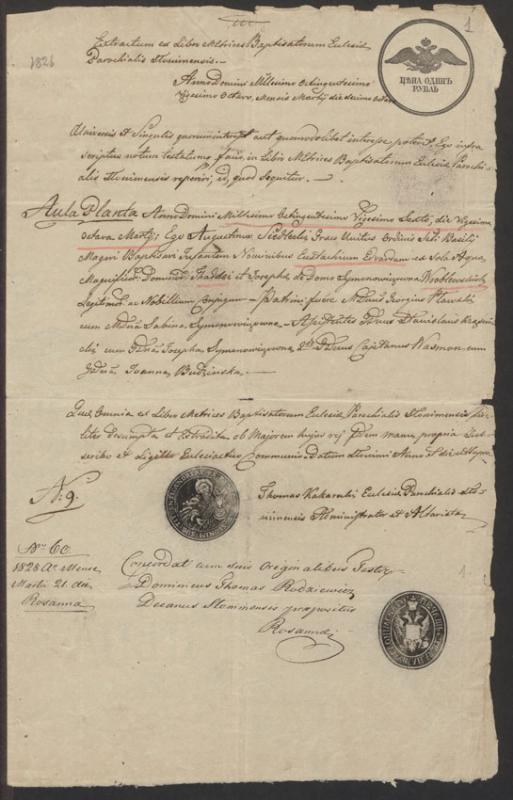 1
1826
Extractum ex Libro Metrices Baptisatorum Eclesiæ
Parochialis Slonimensis.
Anno Domini Millesimo Octingentesimo
Vigesimo Octavo, Mensis Martij die decima Octava
ЦѢНА ОДИНЪ
РУБЛЬ
et Singulis quorum interest aut quomodolibet interesse poterit Ego infra
scriptus notum testatumq facio, in Libro Metrices Baptisatorum Eclesiæ Parochi-
alis Slonimensis reperiri, id quod sequitur
Aula Planta Anno Domini Millesimo Octingentesimo Vigesimo Sexto, die Vigesima
Octava Martij, Ego Augustinus Ordinis Sti Basilij
Magni Baptisavi Infantem Nominibus Eustachium Eduardum ex Sola Aqua
Magnificor Dominor Thaddei et Josephæ de Domo Szymonowiczowna Wroblewskich
Legitimor ac Nobilium Conjugum Patrini fuere
cum Sabina Szymonowiczowna Stanislaus
cum Josepha Szymonowiczowna Cajetanus Wasman cum
Joanna Budzinska
Quæ Omnia ex Libro Metrices Baptisatorum Eclesiæ Parochialis Slonimensis fide-
liter decumpta et Extradita ob Majorem hujus rej fidem manu propria Sub-
scribo et Sigillo Eclesiastico Communio Datum Slonimi Anno
N: 9.
Thomas Eclesiæ Parochialis Slo-
nimensis Administrator et Altarista
Nro 60
1828 Ao Mense
Martii 21. die
Rosanna
Concordat cum suis Originalibus Testor
Dominicus Thomas Rodziewicz
Decanus Slonimensis Præpositus